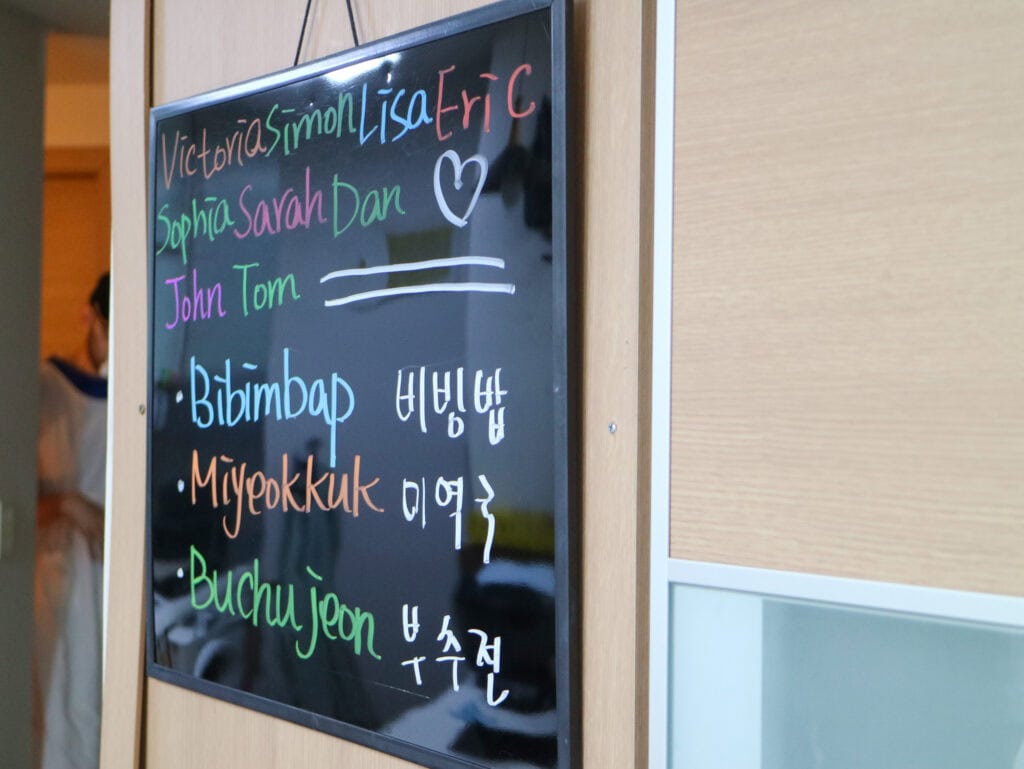 Victoria Simon Lisa Eric
Sophia Sarah Dan
John Tom
· Bibimbap 비빔밥
· Miyeokkuk 미역국
· Buchujeon 부추전